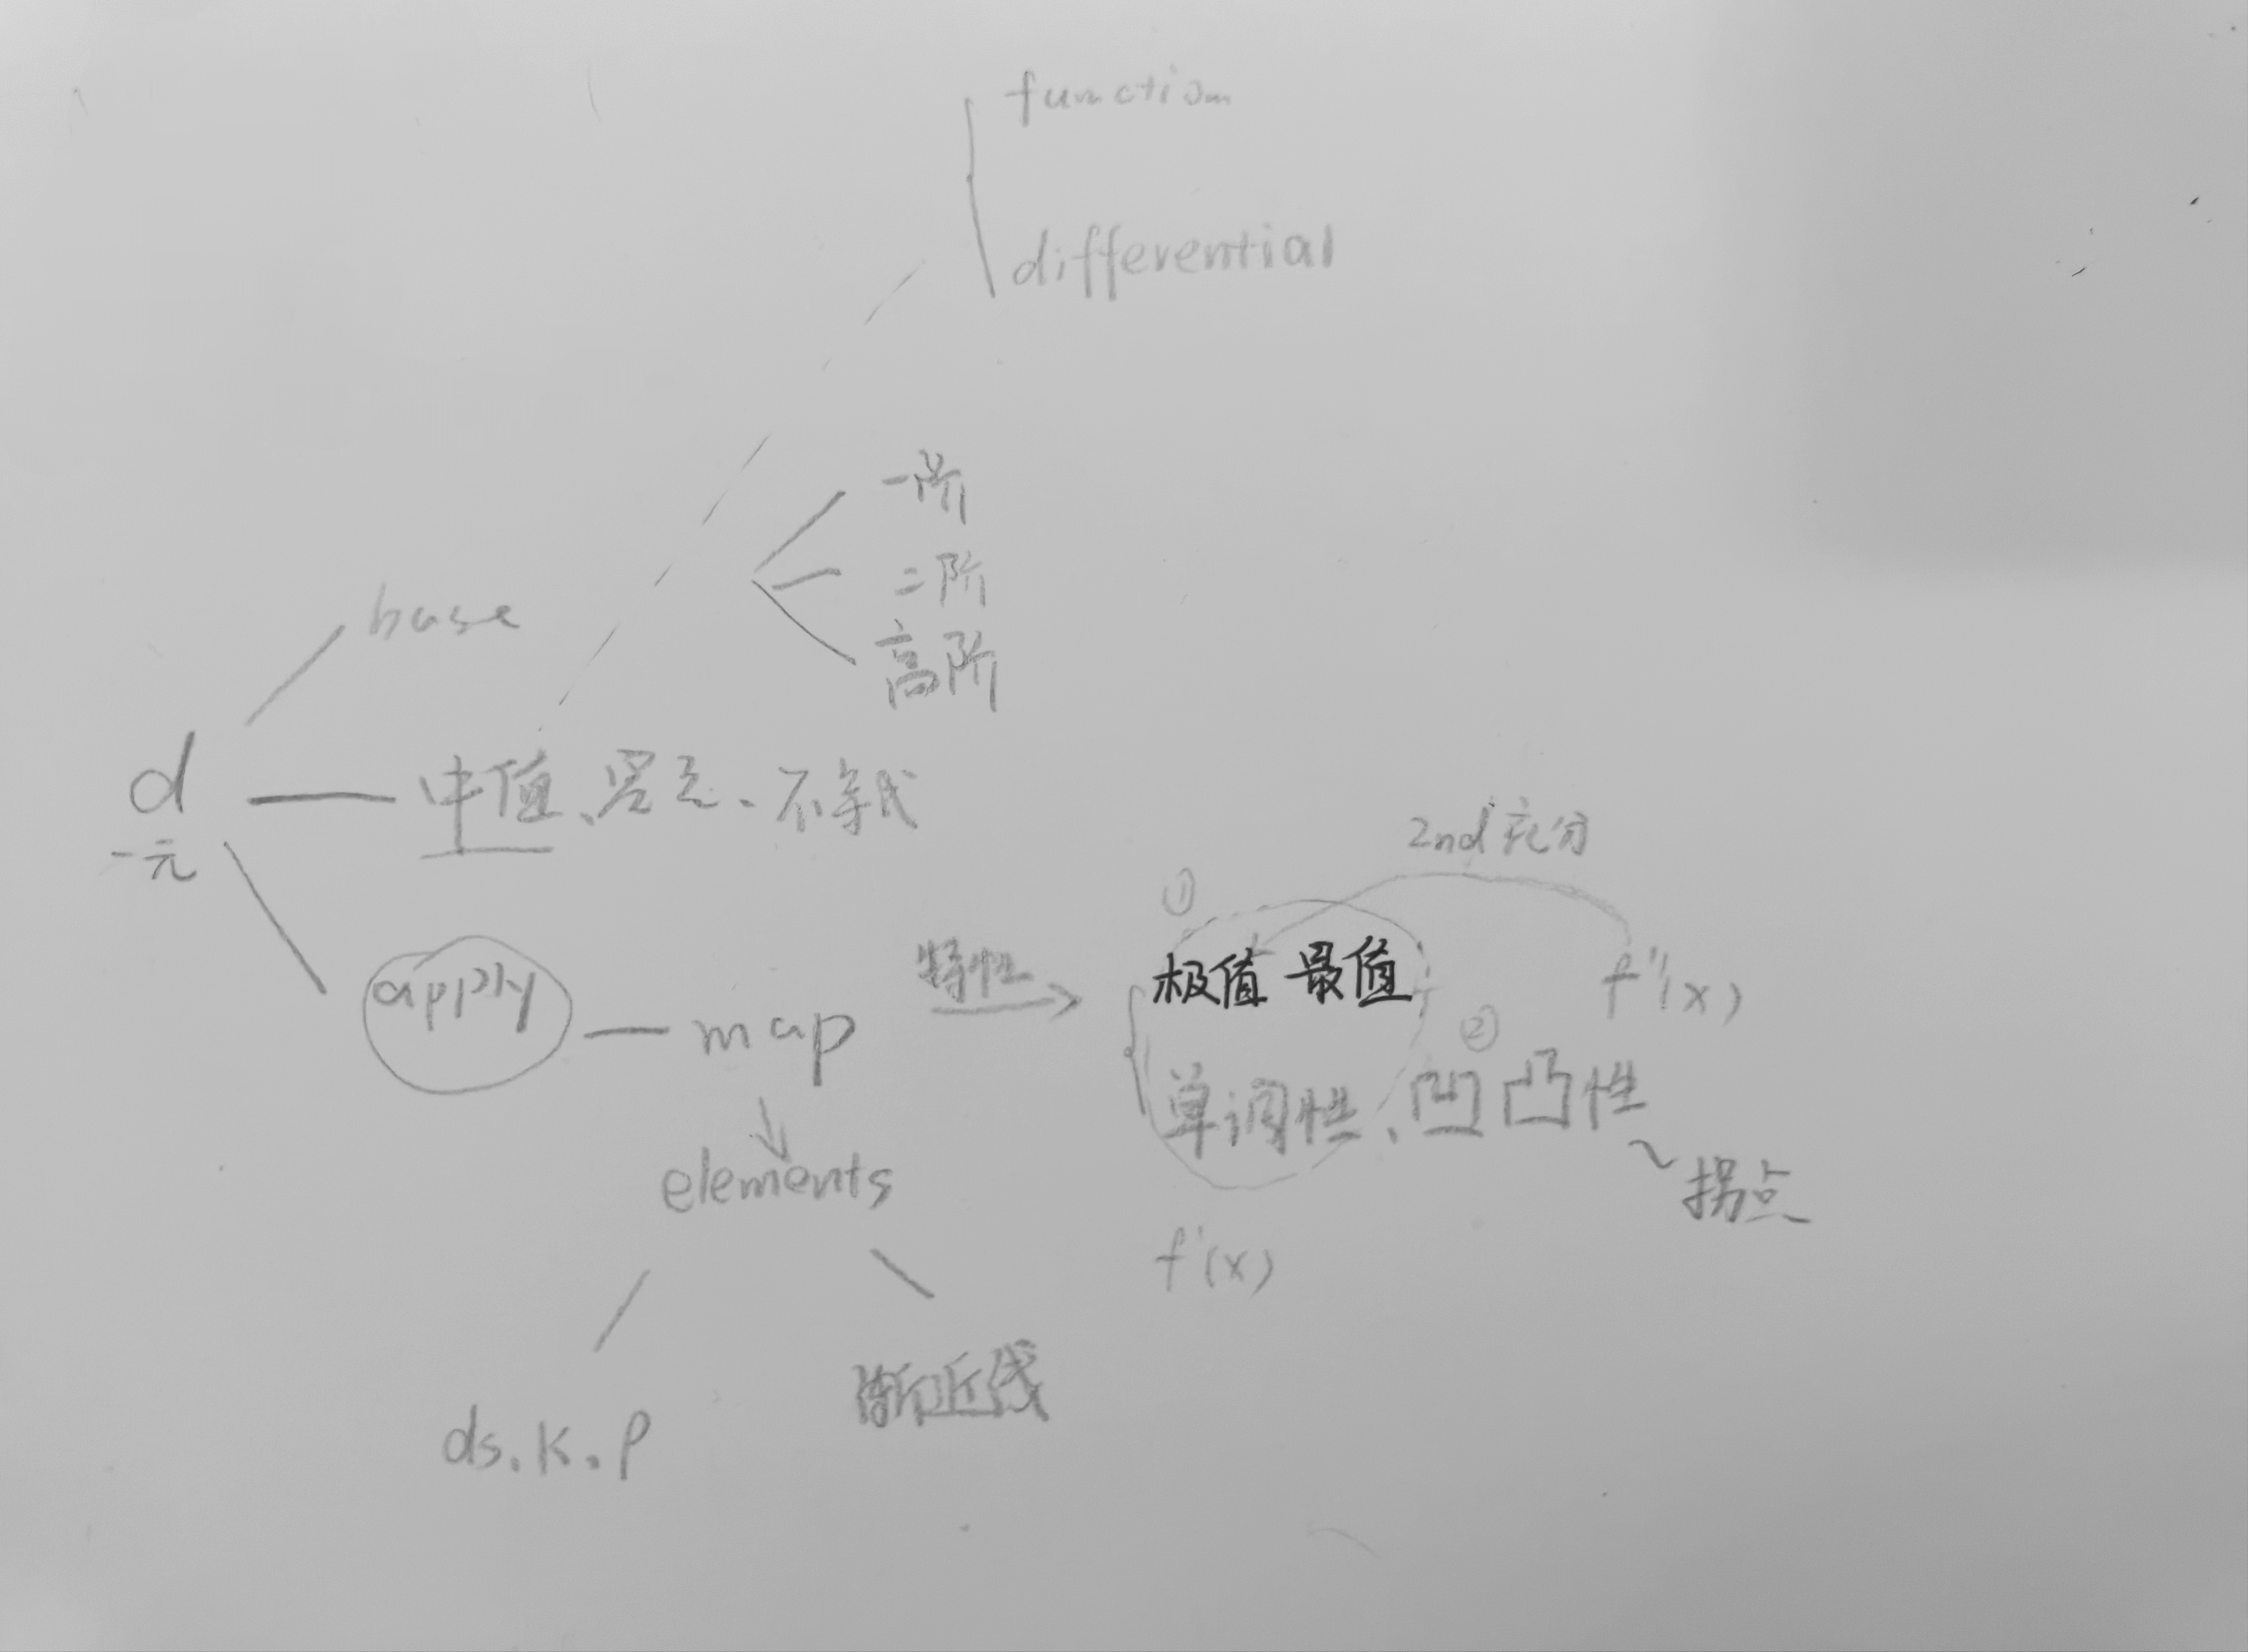 function
differential
一阶
二阶
高阶
base
d
一元
中值、罗元、不等式
2nd 充分
①
apply
map
特性
极值 最值
f''(x)
②
单调性、凹凸性
拐点
elements
f'(x)
ds.k.ρ
渐近线